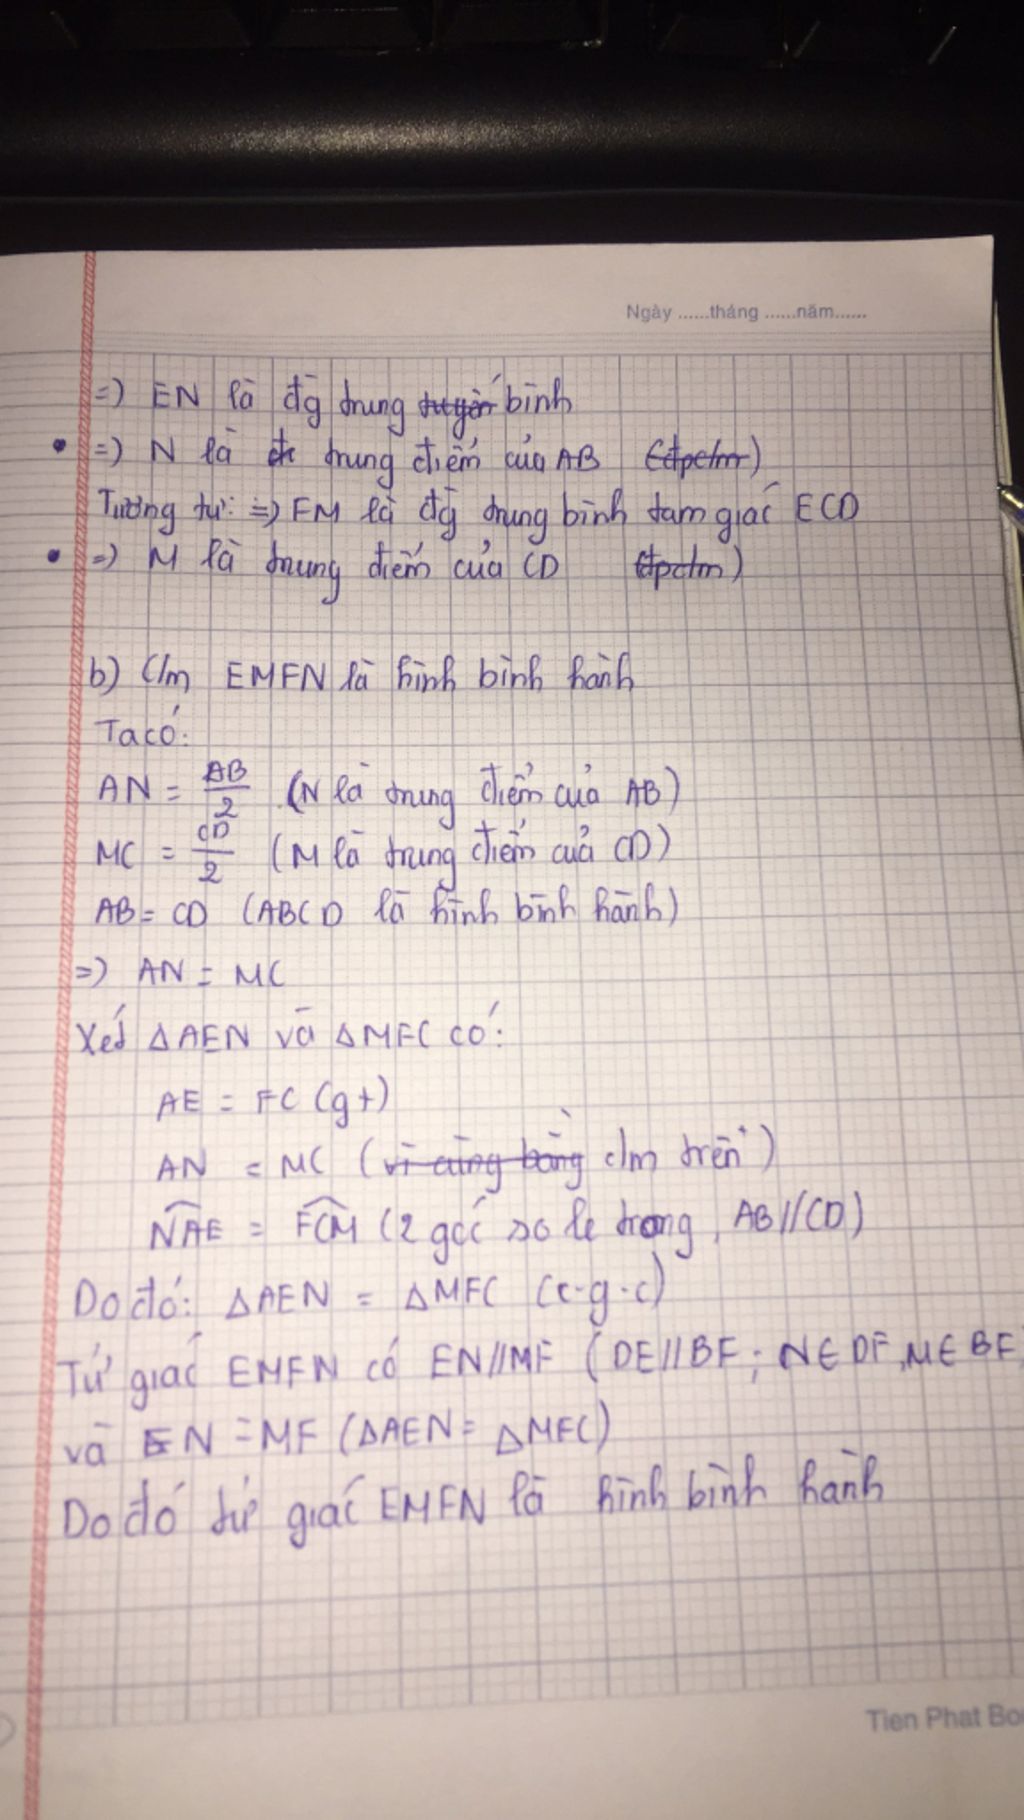 Ngày ......tháng ......năm......
=) EN là đg trung tuyến bình
=) N là đt trung điểm của AB (đpcm)
Tương tự: =) FM là đg trung bình tam giác ECD
=) M là trung điểm của CD (đpcm)
b) C/m EMFN là hình bình hành
Ta có:
AN = AB/2 (N là trung điểm của AB)
MC = CD/2 (M là trung điểm của CD)
AB = CD (ABCD là hình bình hành)
=) AN = MC
Xét ΔAEN và ΔMFC có:
AE = FC (gt)
AN = MC (vì cùng bằng c/m trên)
NAE = FCM (2 góc so le trong, AB//CD)
Do đó: ΔAEN = ΔMFC (c-g-c)
Tứ giác EMFN có EN//MF (DE//BF; N∈DF, M∈BF)
và EN = MF (ΔAEN = ΔMFC)
Do đó tứ giác EMFN là hình bình hành
Tien Phat